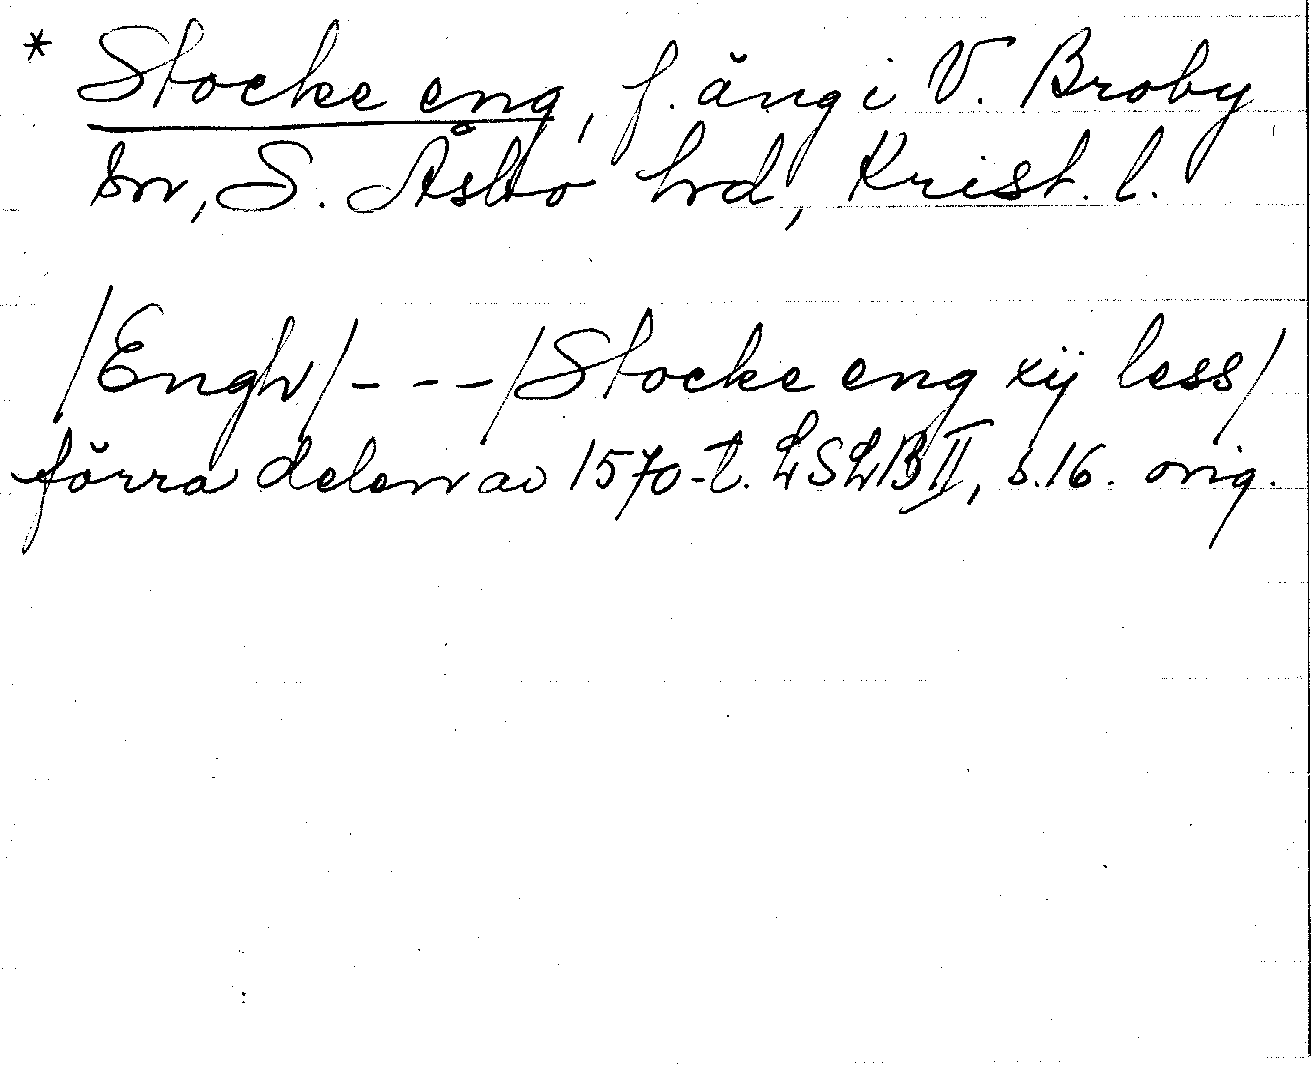 * Stocke eng, f. äng i V. Broby
sn, S. Åsbo hrd, Krist. l.
/Engh/ - - - /Stocke eng xij less/
förra delen av 1570-t. LSLB II, s. 16. orig.